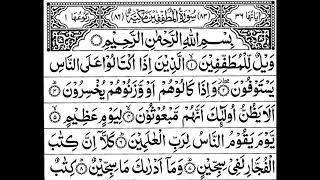 اٰيَاتُهَا ٣٦ (٨٣) سُوْرَةُ الْمُطَفِّفِيْنَ مَكِّيَّةٌ (٨٦) رُكُوْعُهَا ١
بِسْمِ اللّٰهِ الرَّحْمٰنِ الرَّحِيْمِ
وَيْلٌ لِّلْمُطَفِّفِيْنَ ۙ﴿١﴾ الَّذِيْنَ اِذَا اكْتَالُوْا عَلَى النَّاسِ
يَسْتَوْفُوْنَ ۖ﴿٢﴾ وَاِذَا كَالُوْهُمْ اَوْ وَّزَنُوْهُمْ يُخْسِرُوْنَ ؕ﴿٣﴾
اَلَا يَظُنُّ اُولٰٓئِكَ اَنَّهُمْ مَّبْعُوْثُوْنَ ۙ﴿٤﴾ لِيَوْمٍ عَظِيْمٍ ۙ﴿٥﴾
يَّوْمَ يَقُوْمُ النَّاسُ لِرَبِّ الْعٰلَمِيْنَ ؕ﴿٦﴾ كَلَّاۤ اِنَّ كِتٰبَ
الْفُجَّارِ لَفِيْ سِجِّيْنٍ ؕ﴿٧﴾ وَمَاۤ اَدْرٰىكَ مَا سِجِّيْنٌ ؕ﴿٨﴾ كِتٰبٌ